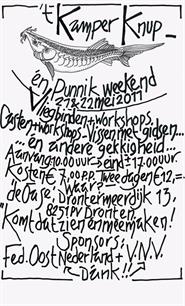 't Kamper Knup
én Punnik weekend
21 & 22 mei 2011
Vliegbinden + workshops,
Casten + workshops - Vissen met gidsen...
... en andere gekkigheid...
Aanvang 10.00 uur - eind ± 17.00 uur
Kosten € 7,00 p.p. Twee dagen € 12,=
Waar?
de Oase, Drontermeerdijk 13,
8251 PV Dronten.
"Komt dat zien en meemaken!
Sponsors:
Fed. Oost Nederland + V.N.V.
Dank!!